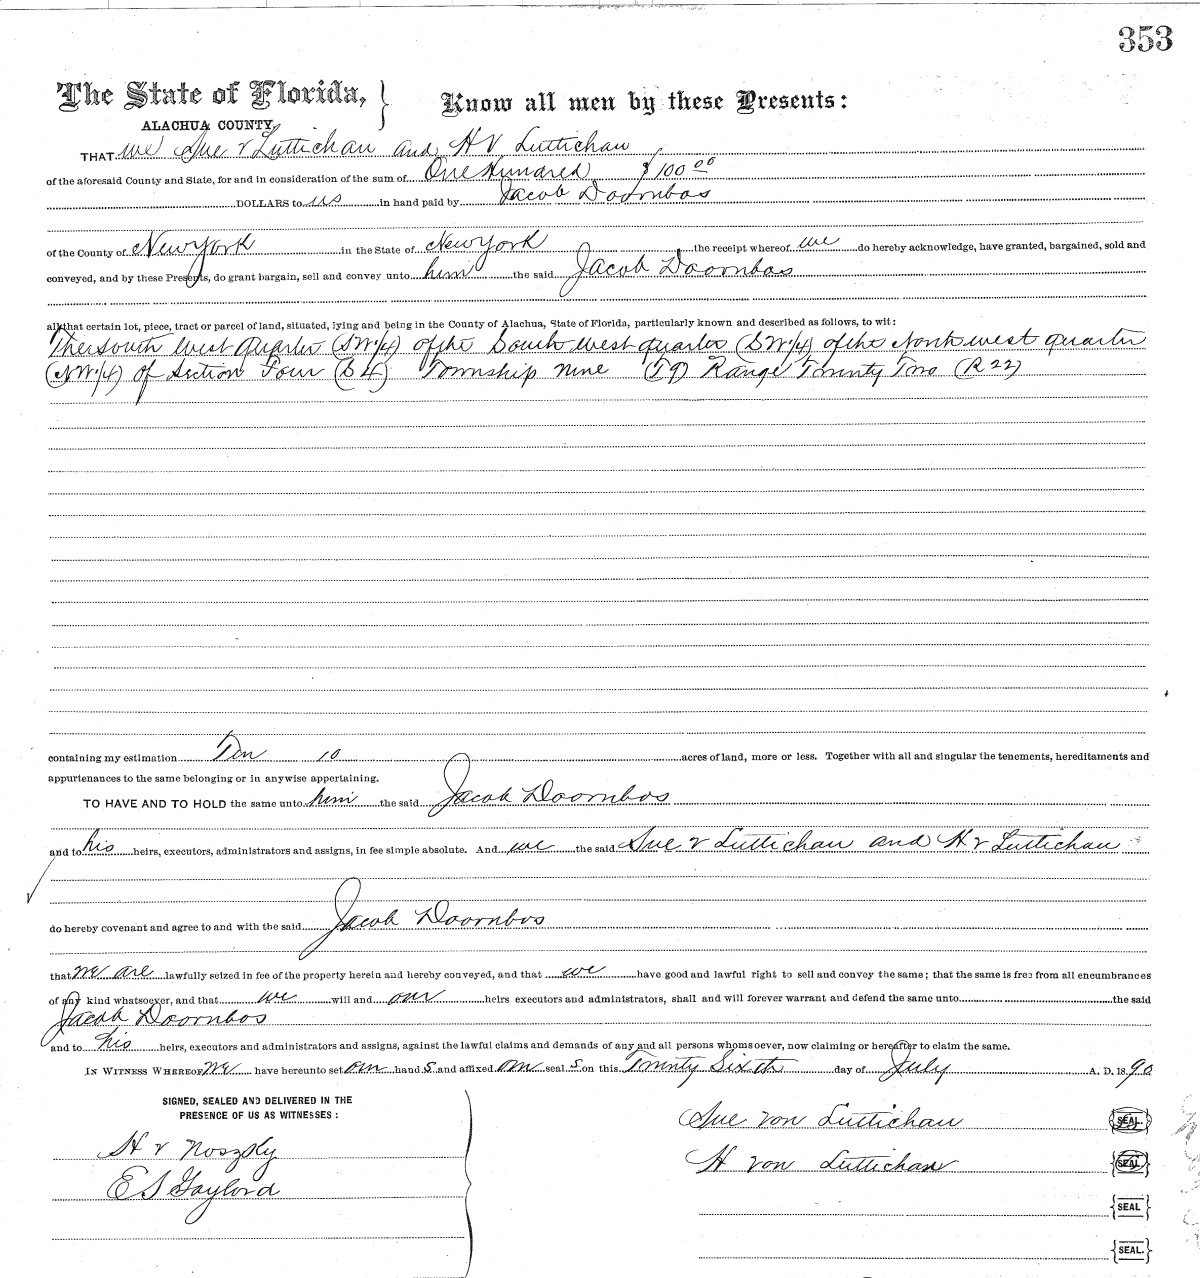 353
The State of Florida, } Know all men by these Presents:
ALACHUA COUNTY,
THAT we Sue v Luttichau and H V Luttichau
of the aforesaid County and State, for and in consideration of the sum of One Hundred $100 00
DOLLARS to us in hand paid by Jacob Doornbos
of the County of New York in the State of New York the receipt whereof we do hereby acknowledge, have granted, bargained, sold and
conveyed, and by these Presents, do grant bargain, sell and convey unto him the said Jacob Doornbos
all that certain lot, piece, tract or parcel of land, situated, lying and being in the County of Alachua, State of Florida, particularly known and described as follows, to wit:
The South West Quarter (SW1/4) of the South West quarter (SW1/4) of the North west quarter
(NW1/4) of Section Four (S 4) Township nine (T9) Range Twenty Two (R 22)
containing my estimation Ten 10 acres of land, more or less. Together with all and singular the tenements, hereditaments and
appurtenances to the same belonging or in anywise appertaining.
TO HAVE AND TO HOLD the same unto him the said Jacob Doornbos
and to his heirs, executors, administrators and assigns, in fee simple absolute. And we the said Sue v Luttichau and H v Luttichau
do hereby covenant and agree to and with the said Jacob Doornbos
that we are lawfully seized in fee of the property herein and hereby conveyed, and that we have good and lawful right to sell and convey the same; that the same is free from all encumbrances
of any kind whatsoever, and that we will and our heirs executors and administrators, shall and will forever warrant and defend the same unto the said
Jacob Doornbos
and to his heirs, executors and administrators and assigns, against the lawful claims and demands of any and all persons whomsoever, now claiming or hereafter to claim the same.
IN WITNESS WHEREOF we have hereunto set our hand s and affixed our seal s on this Twenty Sixth day of July A. D. 18 90
SIGNED, SEALED AND DELIVERED IN THE
PRESENCE OF US AS WITNESSES :
Sue von Luttichau {SEAL}
H v Noszky
H von Luttichau {SEAL}
E S Gaylord
{SEAL}
{SEAL.}